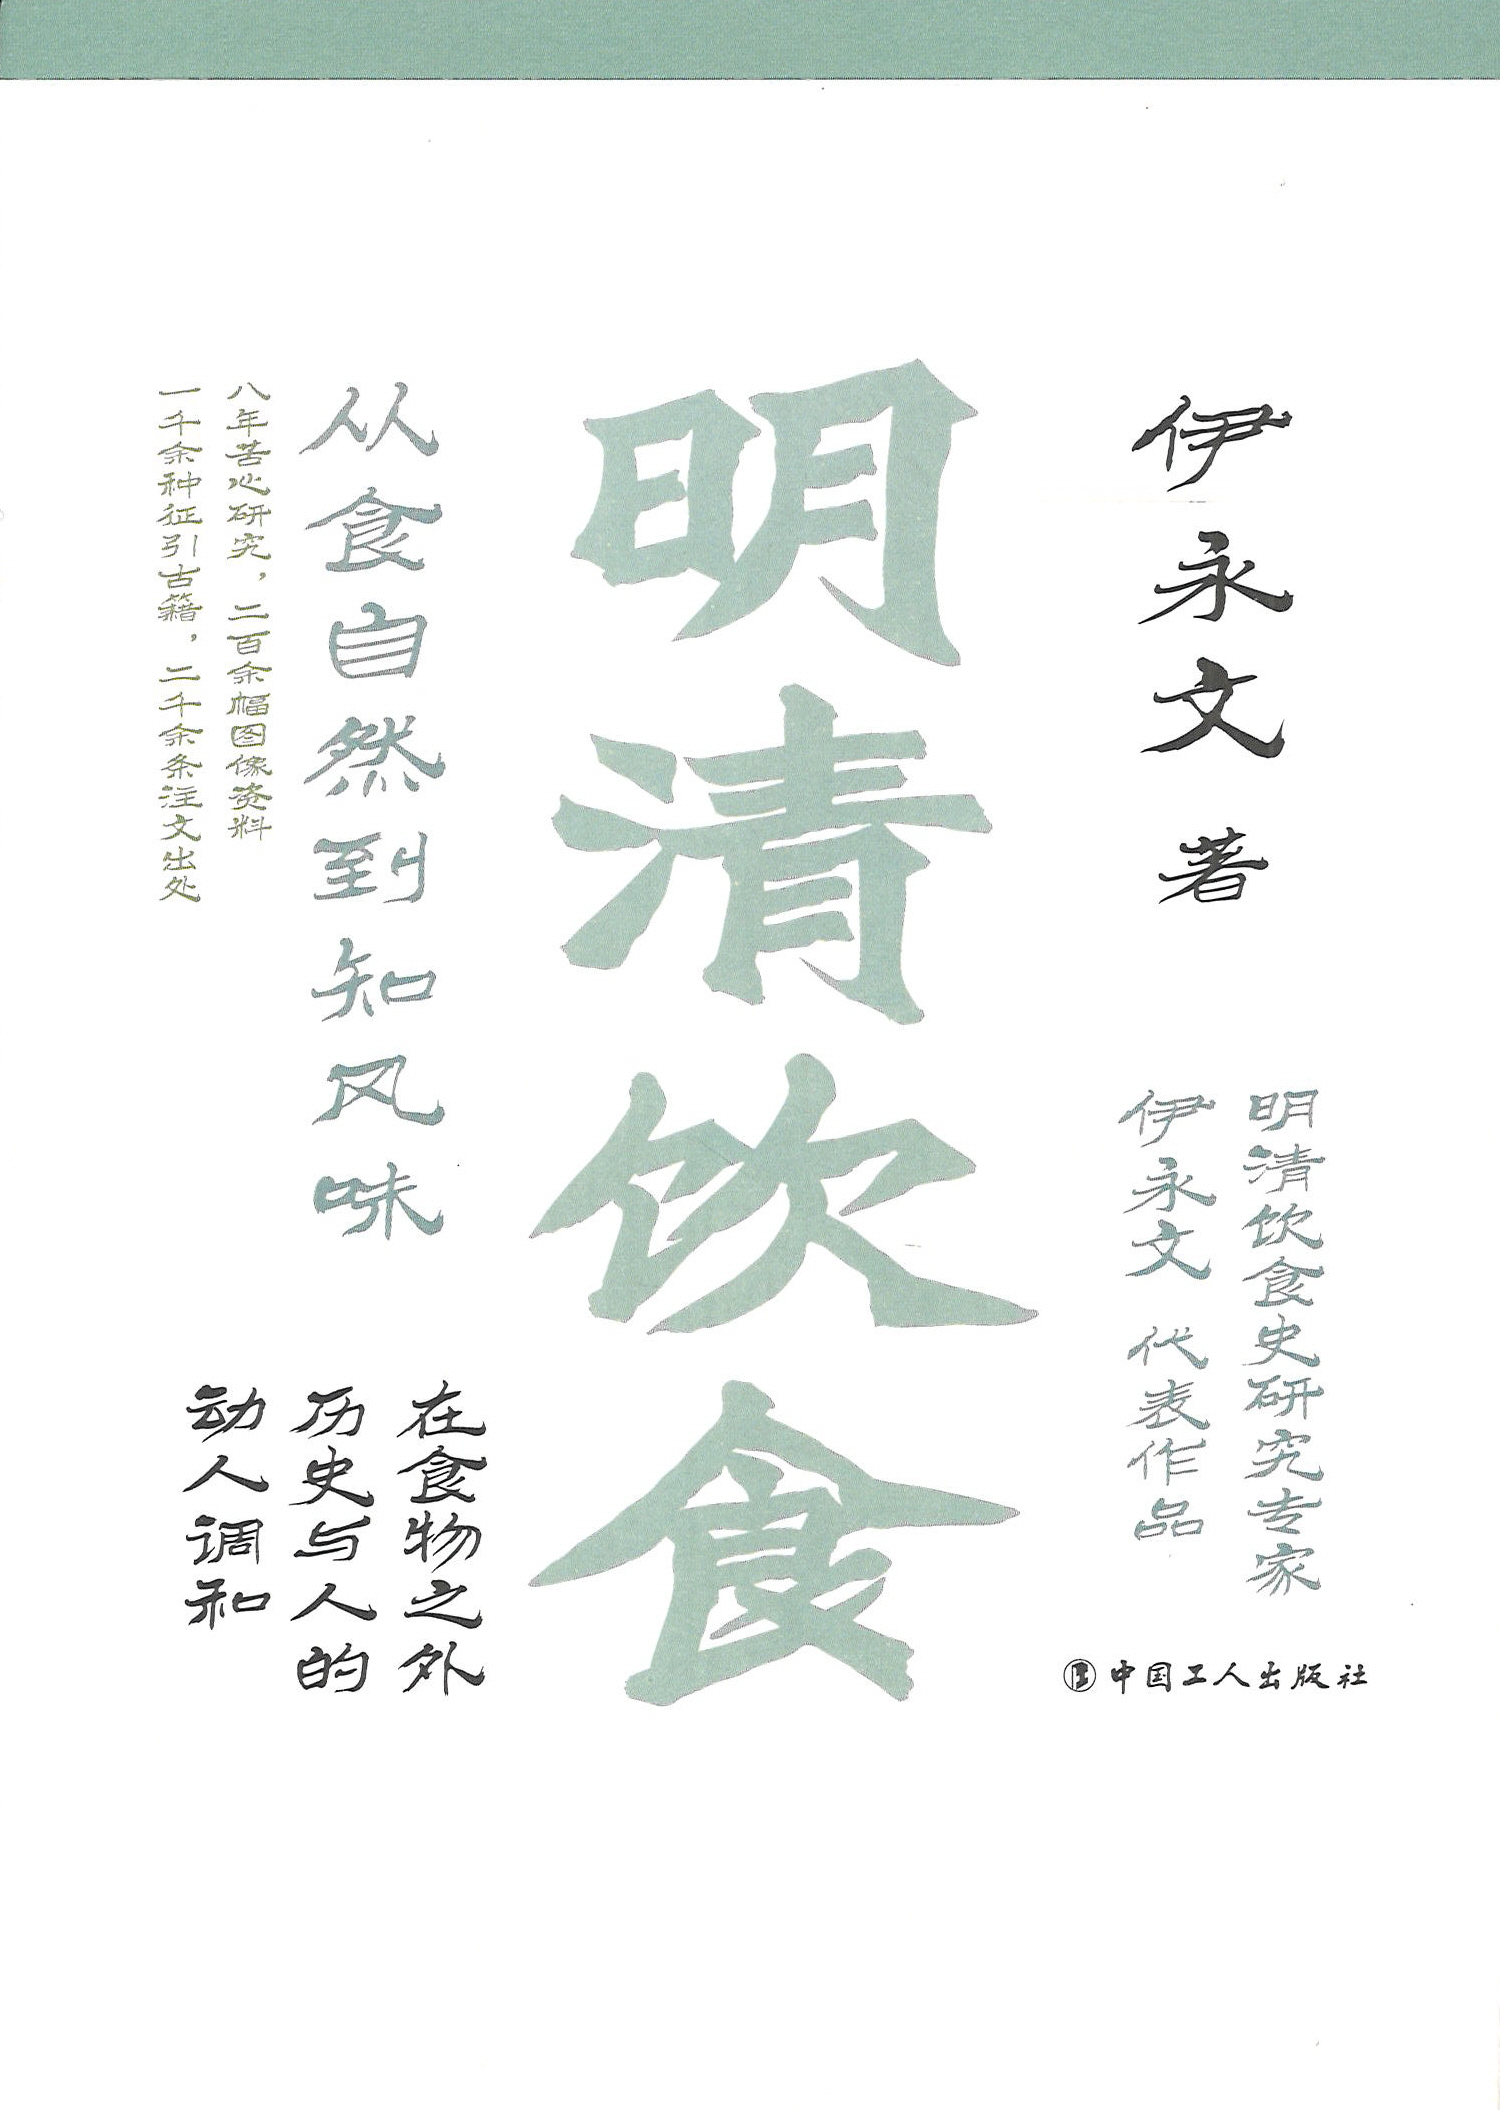 伊永文 著
明清饮食史研究专家
伊永文 代表作品
中国工人出版社
明清饮食
从食自然到知风味
八年苦心研究，二百余幅图像资料
一千余种征引古籍，二千余条注文出处
在食物之外
历史与人的
动人调和